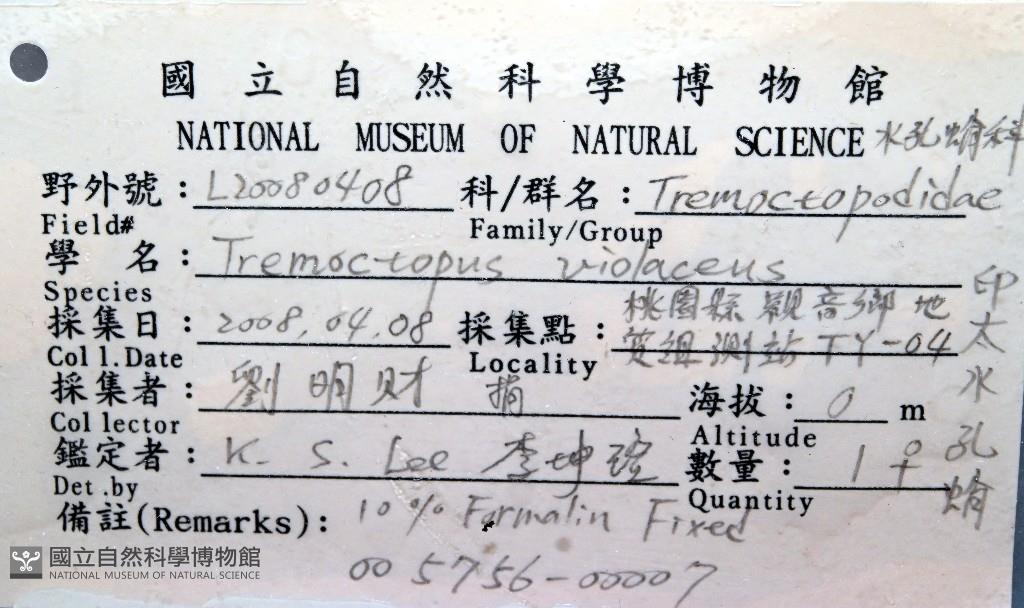 國立自然科學博物館
NATIONAL MUSEUM OF NATURAL SCIENCE 水孔蛸科
野外號: L20080408 科/群名: Tremoctopodidae
Field# Family/Group
學 名: Tremoctopus violaceus
Species
採集日: 2008.04.08 採集點: 桃園縣觀音鄉 地質組測站TY-04
Coll.Date Locality
採集者: 劉明財 捐 海拔: 0 m
Collector Altitude
鑑定者: K. S. Lee 李坤瑄 數量: 1 ♀
Det.by Quantity
備註(Remarks): 10% Formalin Fixed
005756-00007
印太水孔蛸
國立自然科學博物館
NATIONAL MUSEUM OF NATURAL SCIENCE